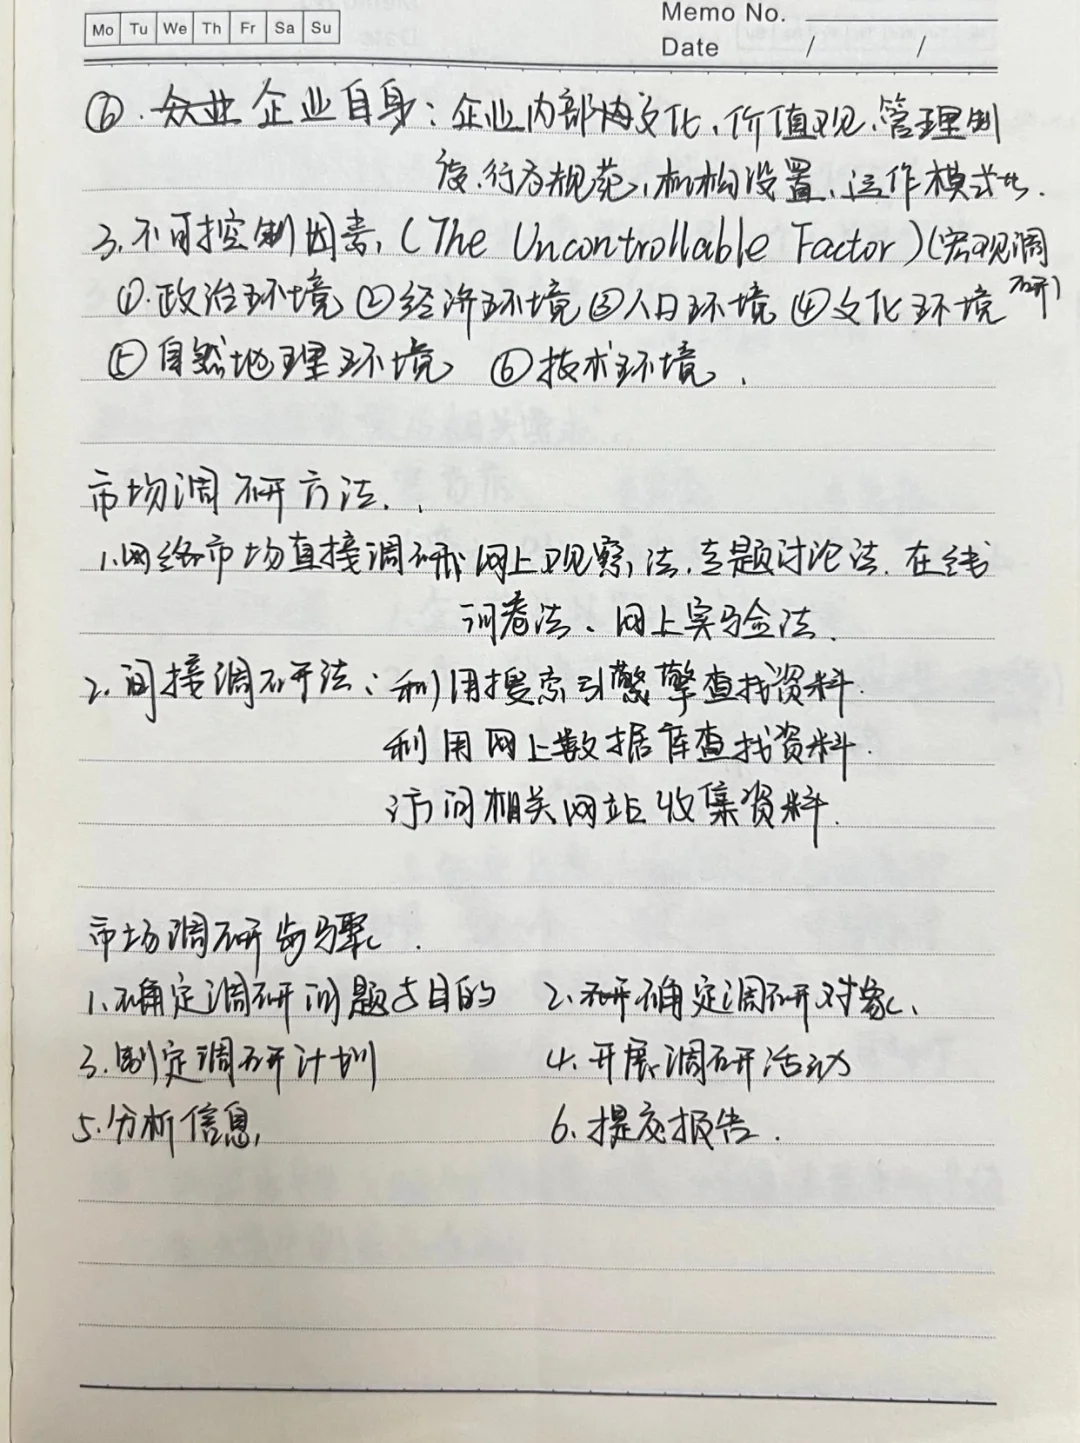 Mo Tu We Th Fr Sa Su
Memo No.
Date / /
⑥. 企业自身：企业内部文化、价值观、管理制
度、行为规范、机构设置、运作模式等.
3. 不可控制因素,（The Uncontrollable Factor）(宏观调
研)
①.政治环境 ②经济环境 ③人口环境 ④文化环境
⑤自然地理环境 ⑥技术环境.
市场调研方法.
1.网络市场直接调研 网上观察法.专题讨论法.在线
问卷法、网上实验法.
2.间接调研法：利用搜索引擎查找资料.
利用网上数据库查找资料.
访问相关网站收集资料.
市场调研步骤.
1.确定调研问题与目的 2.确定调研对象.
3.制定调研计划 4.开展调研活动
5.分析信息, 6.提交报告.